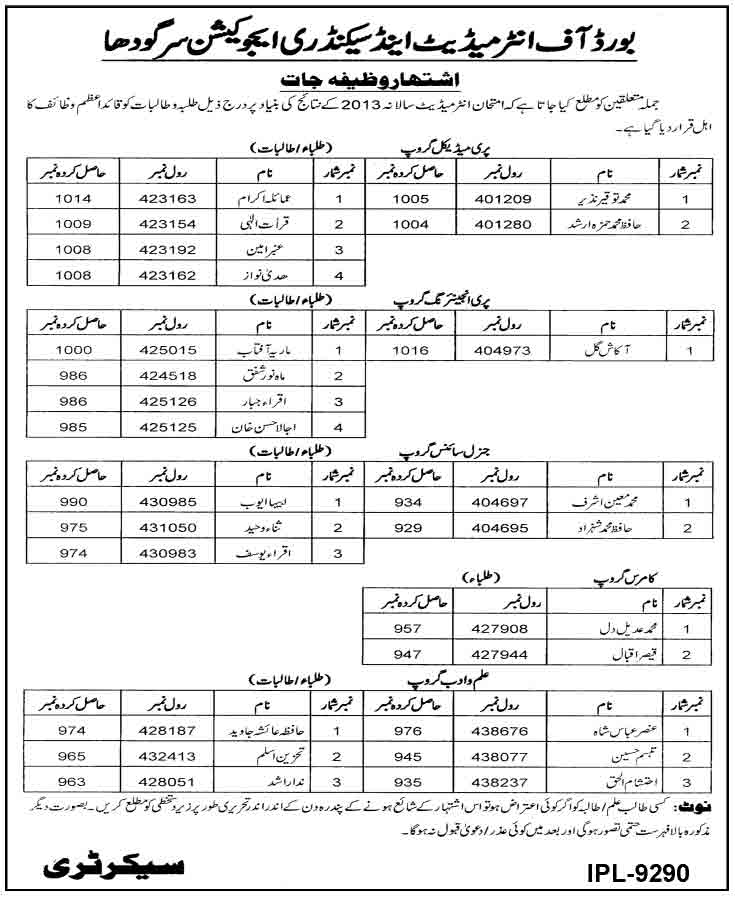 بورڈ آف انٹرمیڈیٹ اینڈ سیکنڈری ایجوکیشن سرگودھا
اشتہار وظیفہ جات
جملہ متعلقین کو مطلع کیا جاتا ہے کہ امتحان انٹرمیڈیٹ سالانہ 2013 کے نتائج کی بنیاد پر درج ذیل طلبہ و طالبات کو قائداعظم وظائف کا
اہل قرار دیا گیا ہے۔
پری میڈیکل گروپ (طلباء/طالبات)
نمبر شمار نام رول نمبر حاصل کردہ نمبر نمبر شمار نام رول نمبر حاصل کردہ نمبر
1 محمد توقیر نذیر 401209 1005 1 عمائلہ اکرام 423163 1014
2 حافظ محمد حمزہ ارشد 401280 1004 2 قرأت الٰہی 423154 1009
3 عنبر امین 423192 1008
4 ھدیٰ نواز 423162 1008
پری انجینئرنگ گروپ (طلباء/طالبات)
نمبر شمار نام رول نمبر حاصل کردہ نمبر نمبر شمار نام رول نمبر حاصل کردہ نمبر
1 آکاش گل 404973 1016 1 ماریہ آفتاب 425015 1000
2 ماہ نور شفق 424518 986
3 اقراء جبار 425126 986
4 اجالا حسن خان 425125 985
جنرل سائنس گروپ (طلباء/طالبات)
نمبر شمار نام رول نمبر حاصل کردہ نمبر نمبر شمار نام رول نمبر حاصل کردہ نمبر
1 محمد معین اشرف 404697 934 1 ابیہا ایوب 430985 990
2 حافظ محمد شہزاد 404695 929 2 ثناء وحید 431050 975
3 اقراء یوسف 430983 974
کامرس گروپ (طلباء)
نمبر شمار نام رول نمبر حاصل کردہ نمبر
1 محمد عدیل دل 427908 957
2 قیصر اقبال 427944 947
علم و ادب گروپ (طلباء/طالبات)
نمبر شمار نام رول نمبر حاصل کردہ نمبر نمبر شمار نام رول نمبر حاصل کردہ نمبر
1 عنصر عباس شاہ 438676 976 1 حافظہ عائشہ جاوید 428187 974
2 تبسم حسین 438077 945 2 تحزین اسلم 432413 965
3 احتشام الحق 438237 935 3 ندا راشد 428051 963
نوٹ: کسی طالب علم/طالبہ کو اگر کوئی اعتراض ہو تو اس اشتہار کے شائع ہونے کے پندرہ دن کے اندر اندر تحریری طور پر زیر دستخطی کو مطلع کریں۔ بصورت دیگر
مذکورہ بالا فہرست حتمی تصور ہوگی اور بعد میں کوئی عذر/دعویٰ قبول نہ ہوگا۔
سیکرٹری
IPL-9290